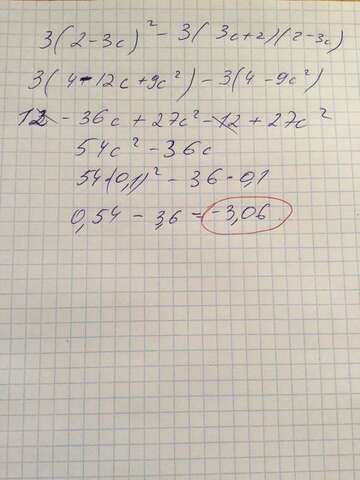 3(2-3c)² - 3(3c+2)(2-3c)
3(4-12c+9c²) - 3(4-9c²)
12 - 36c + 27c² - 12 + 27c²
54c² - 36c
54·(0,1)² - 36·0,1
0,54 - 3,6 = -3,06